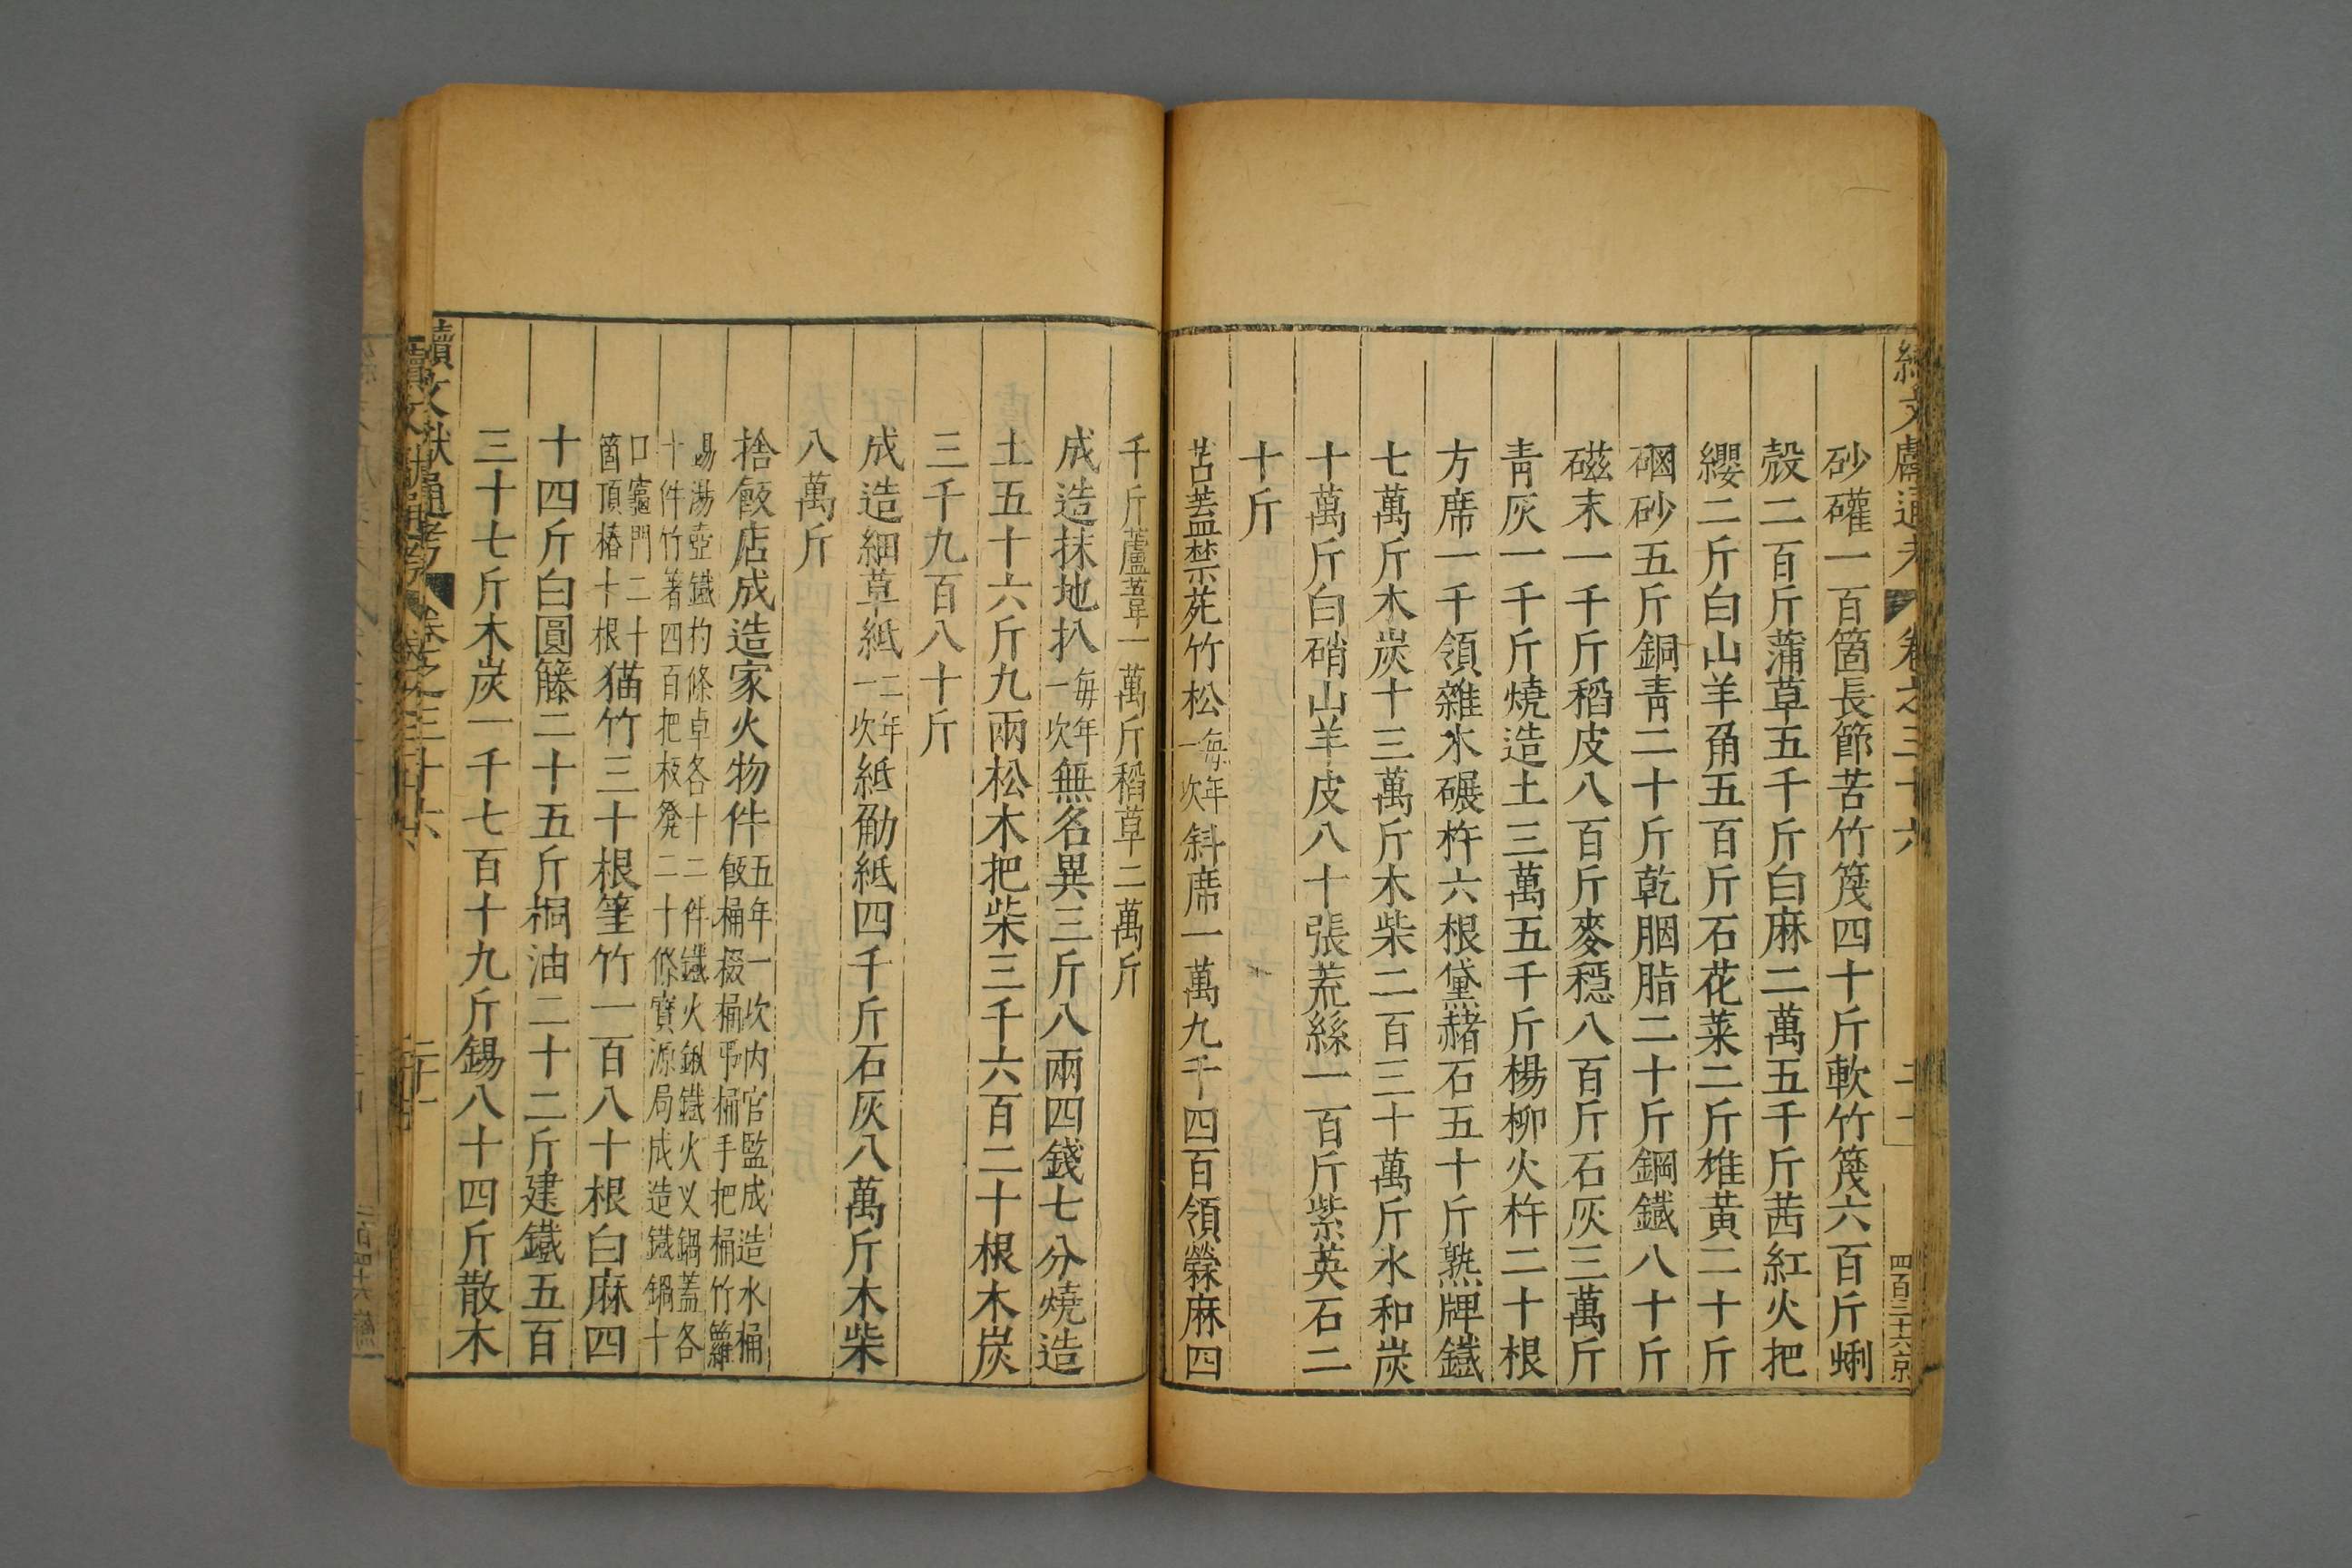 續文獻通考 卷之三十六 二十一 四百三十六京
砂礶一百箇長節苦竹篾四十斤軟竹篾六百斤蜊
殼二百斤蒲草五千斤白麻二萬五千斤茜紅火把
纓二斤白山羊角五百斤石花菜二斤雄黃二十斤
砂五斤銅青二十斤乾胭脂二十斤鋼鐵八十斤
磁末一千斤稻皮八百斤麥穩八百斤石灰三萬斤
青灰一千斤燒造土三萬五千斤楊柳火杵二十根
方席一千領雜木碾杵六根黛赭石五十斤熟牌鐵
七萬斤木炭十三萬斤木柴二百三十萬斤水和炭
十萬斤白硝山羊皮八十張荒絲一百斤紫英石二
十斤
苫蓋禁苑竹松每年一次斜席一萬九千四百領檾麻四
千斤蘆葦一萬斤稻草二萬斤
成造抹地扒每年一次無名異三斤八兩四錢七分燒造
土五十六斤九兩松木把柴三千六百二十根木炭
三千九百八十斤
成造細草紙二年一次紙觔紙四千斤石灰八萬斤木柴
八萬斤
捨飯店成造家火物件五年一次內官監成造水桶
飯桶桵桶弔桶手把桶竹籮
錫湯壺鐵杓條卓各十二件鐵火鍬鐵火叉鍋蓋各
十件竹著四百把板凳二十條寶源局成造鐵鍋十
口竈門二十
箇頂樁十根猫竹三十根篁竹一百八十根白麻四
十四斤白圓籐二十五斤桐油二十二斤建鐵五百
三十七斤木炭一千七百十九斤錫八十四斤散木
續文獻通考 卷之三十六 二十一